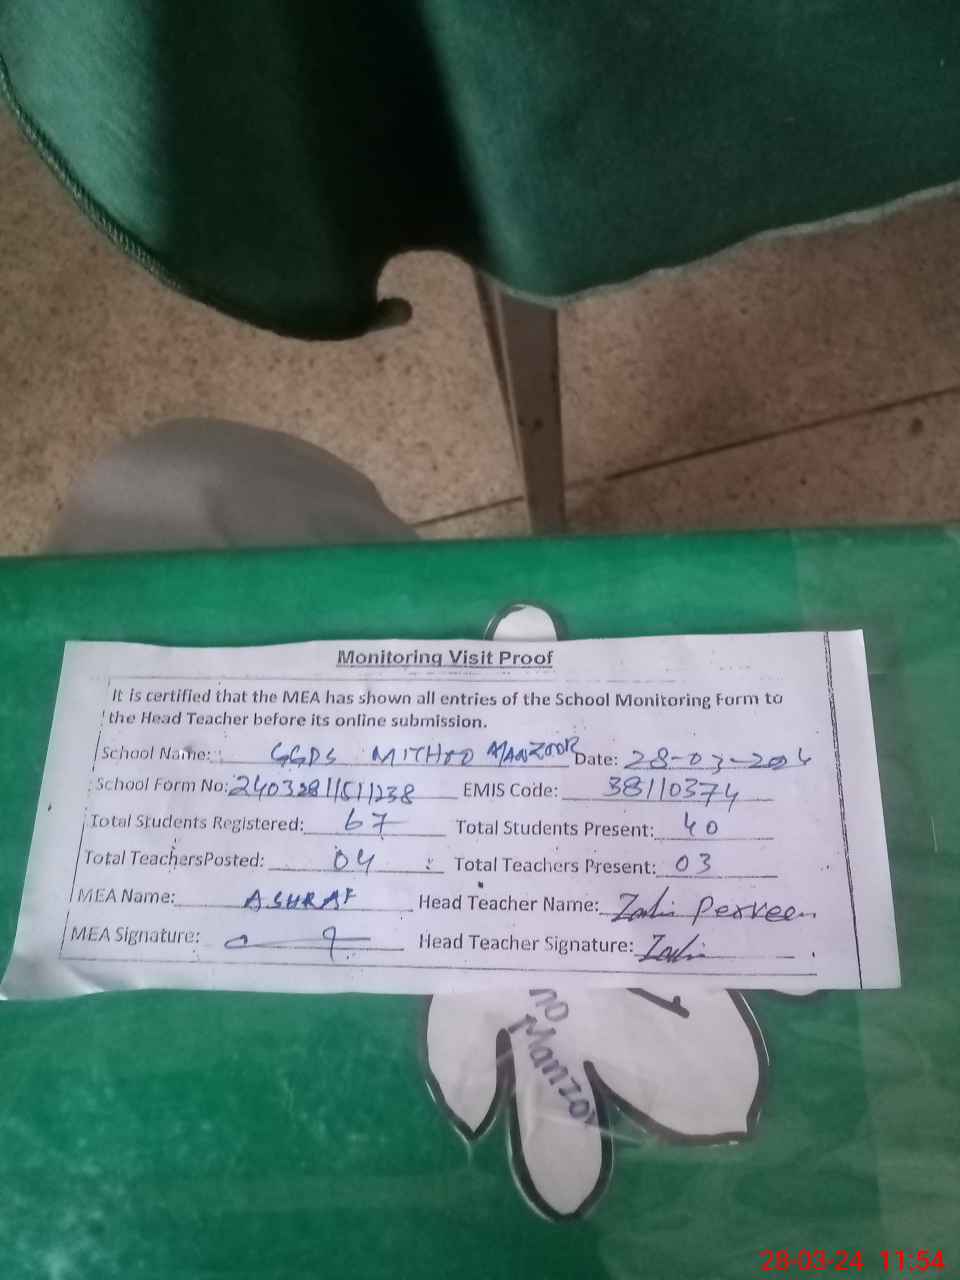 Monitoring Visit Proof
It is certified that the MEA has shown all entries of the School Monitoring Form to
the Head Teacher before its online submission.
School Name: GGPS MITHOO MANZOOR Date: 28-03-2024
School Form No: EMIS Code: 38110374
Total Students Registered: 67 Total Students Present: 40
Total TeachersPosted: 04 Total Teachers Present: 03
MEA Name: ASHRAF Head Teacher Name: Perveen
MEA Signature: Head Teacher Signature:
no
Manzor
28-03-24 11:54